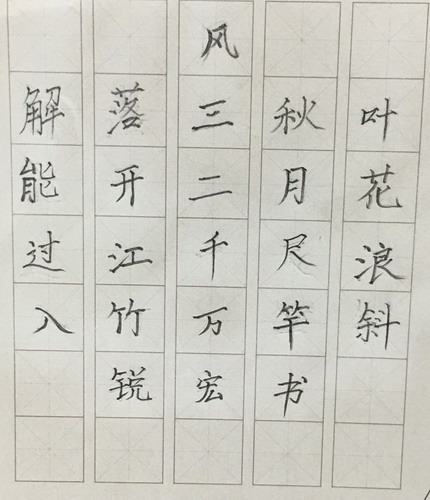 风
解落三秋叶
能开二月花
过江千尺浪
入竹万竿斜
锐宏书